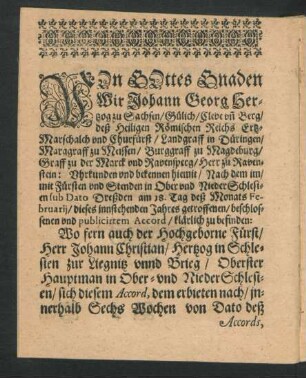 VOn GOttes Gnaden
Wir Johann Georg Her-
zog zu Sachsen/ Gülich/ Cleve vñ Berg/
deß Heiligen Römischen Reichs Ertz-
Marschalch und Churfürst/ Landgraff in Düringen/
Marggraff zu Meissen/ Burggraff zu Magdeburg/
Graff zu der Marck und Ravenspurg/ Herr zu Raven-
stein: Uhrkunden und bekennen hiemit/ Nach dem im-
mit Fürsten und Stenden in Ober und NiederSchlesi-
en sub Dato Dreßden am 18. Tag deß Monats Fe-
bruarij/ dieses innstehenden Jahres getroffenen/ beschlos-
senen und publicirtem Accord/ klärlich zu befinden:
Wo fern auch der Hochgeborne Fürst/
Herr Johann Christian/ Hertzog in Schle-
sien zur Liegnitz vnnd Brieg/ Oberster
Hauptman in Ober- und NiederSchlesi-
en/ sich diesem Accord, dem erbieten nach/ in-
nerhalb Sechs Wochen von Dato deß
Accords,